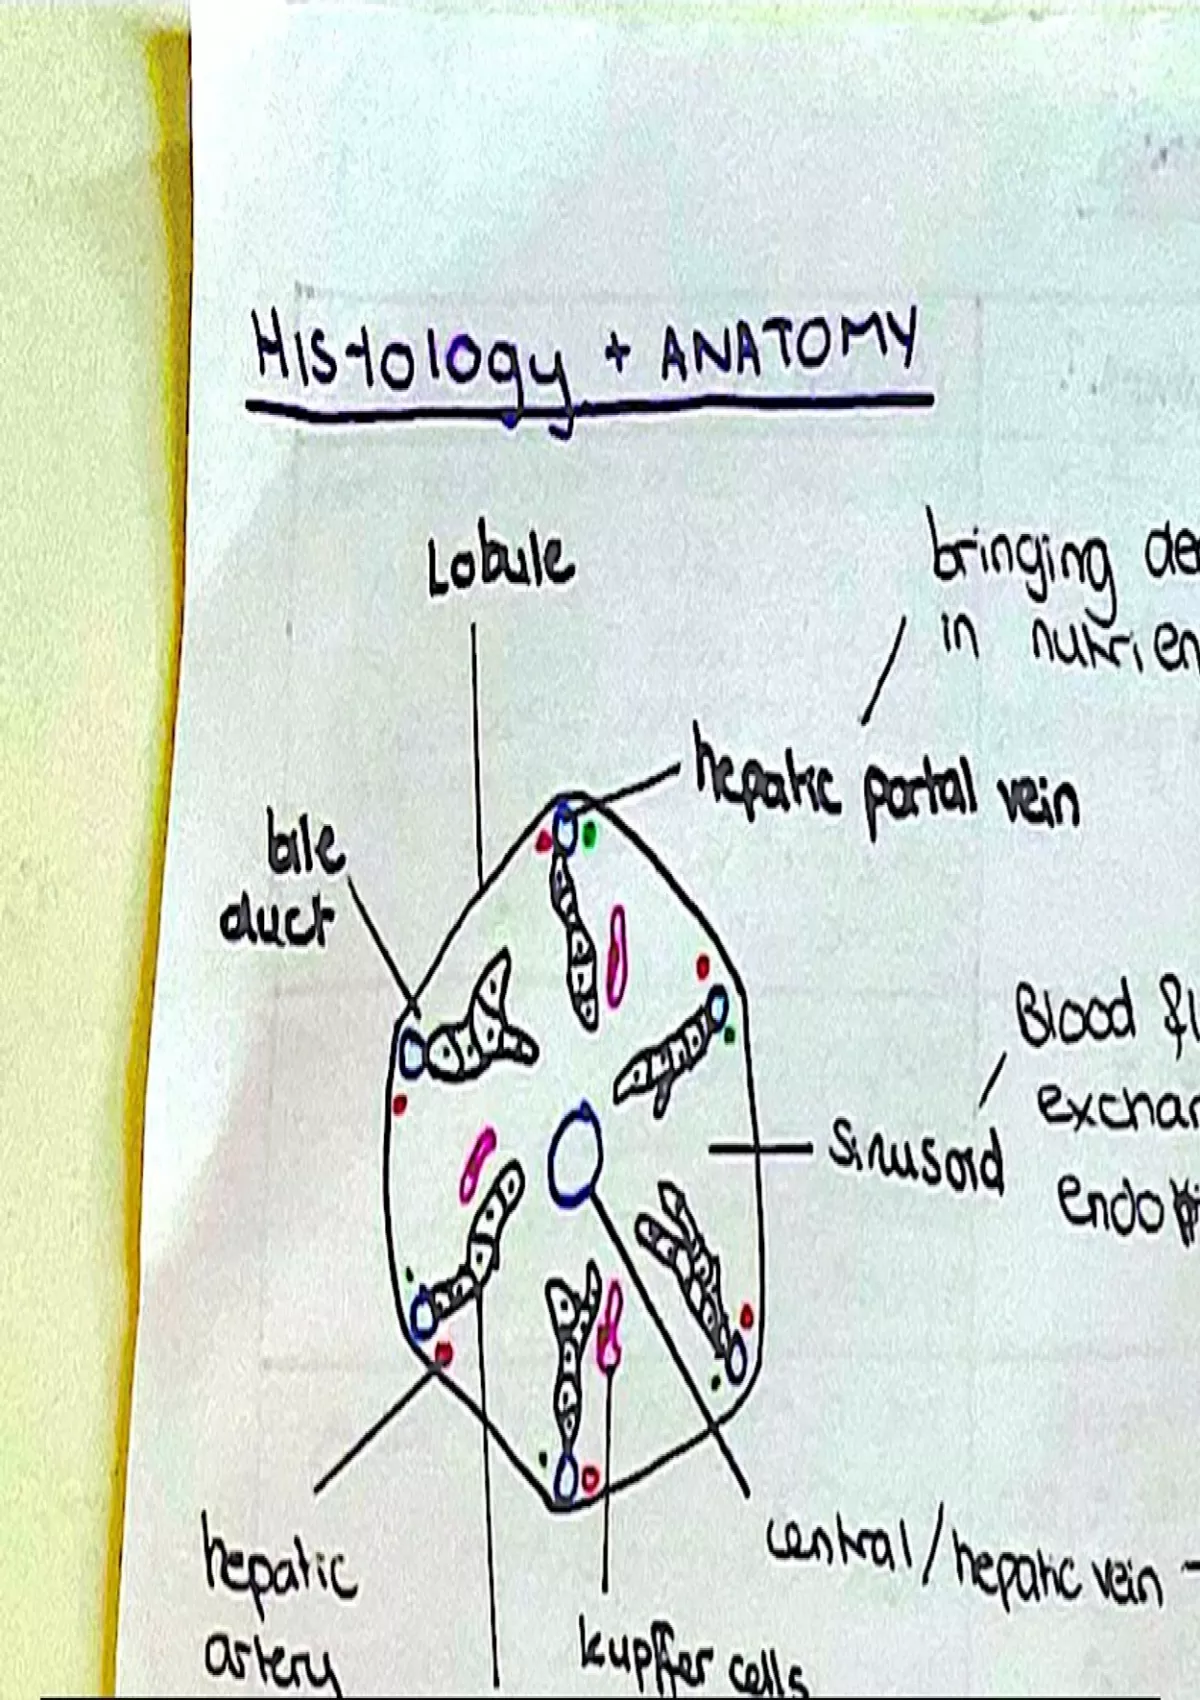 Histology + ANATOMY
Lobule
bringing de
in nutrien
hepatic portal vein
bile
duct
Blood fl
exchan
Sinusoid
endo
hepatic
artery
central/hepatic vein -
kupffer cells